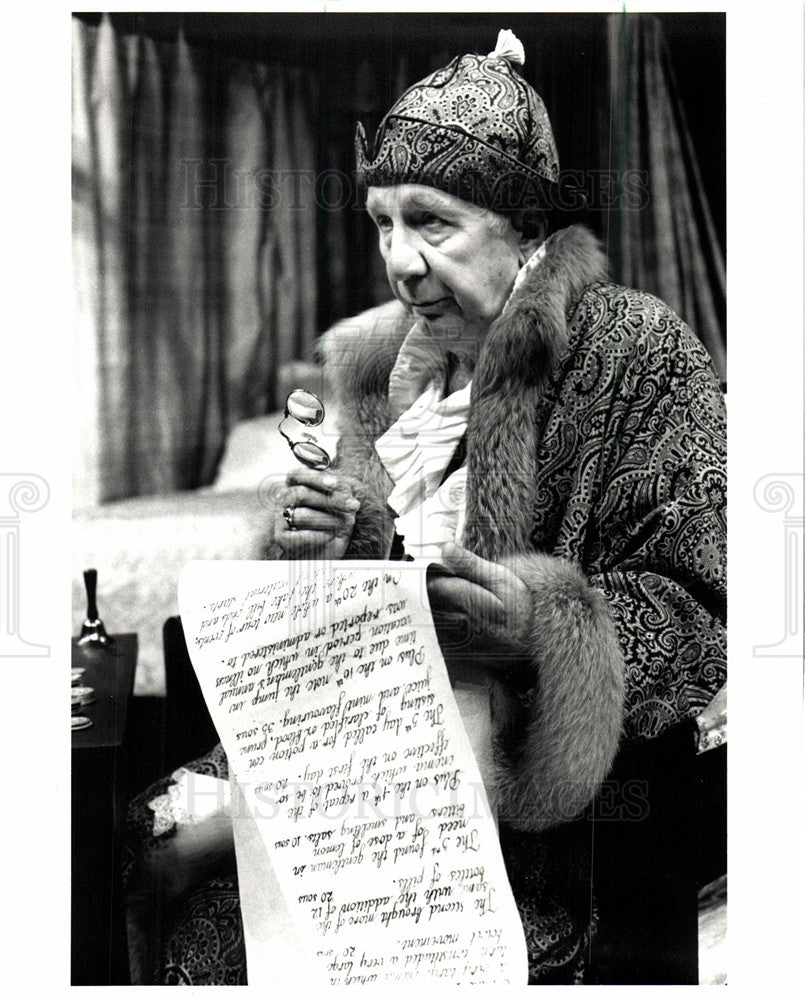 HISTORIC IMAGES
very large enema which in
turn constituted a very large
bowel movement. 20 sous
The second brought more of the
same, with the addition of 12
bottles of pills. 20 sous
The 3rd found the gentleman in
need of a dose of lemon
bitters and smelling salts. 10 sous
Plus on the 4th a repeat of the
enema which proved to be so
effective on the first day. 20 sous
The 5th day called for a potion con
sisting of clarified ox blood, prune
juice and mint flavouring. 35 sous
Plus on the 16th note the jump in
time due to the gentleman's annual
vacation period in which no illness
was reported or administered to.
On the 20th a whole new tour of events,
bill ends and
starts.
HISTORIC IMAGES